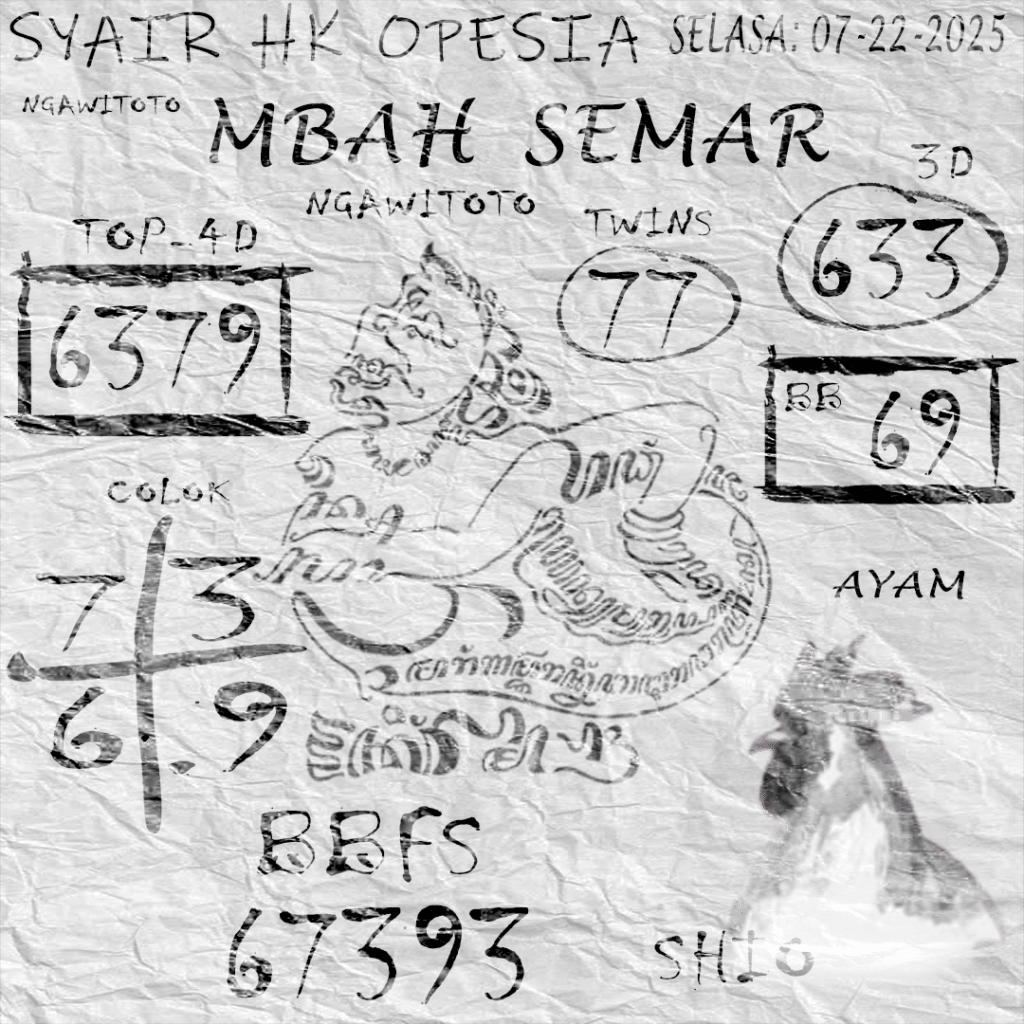 SYAIR HK OPESIA SELASA: 07-22-2025
NGAWITOTO
MBAH SEMAR
3D
NGAWITOTO
TWINS
TOP_4D
633
77
6379
BB 69
COLOK
7 3
6 .9
AYAM
BBFS
67393
SHIO